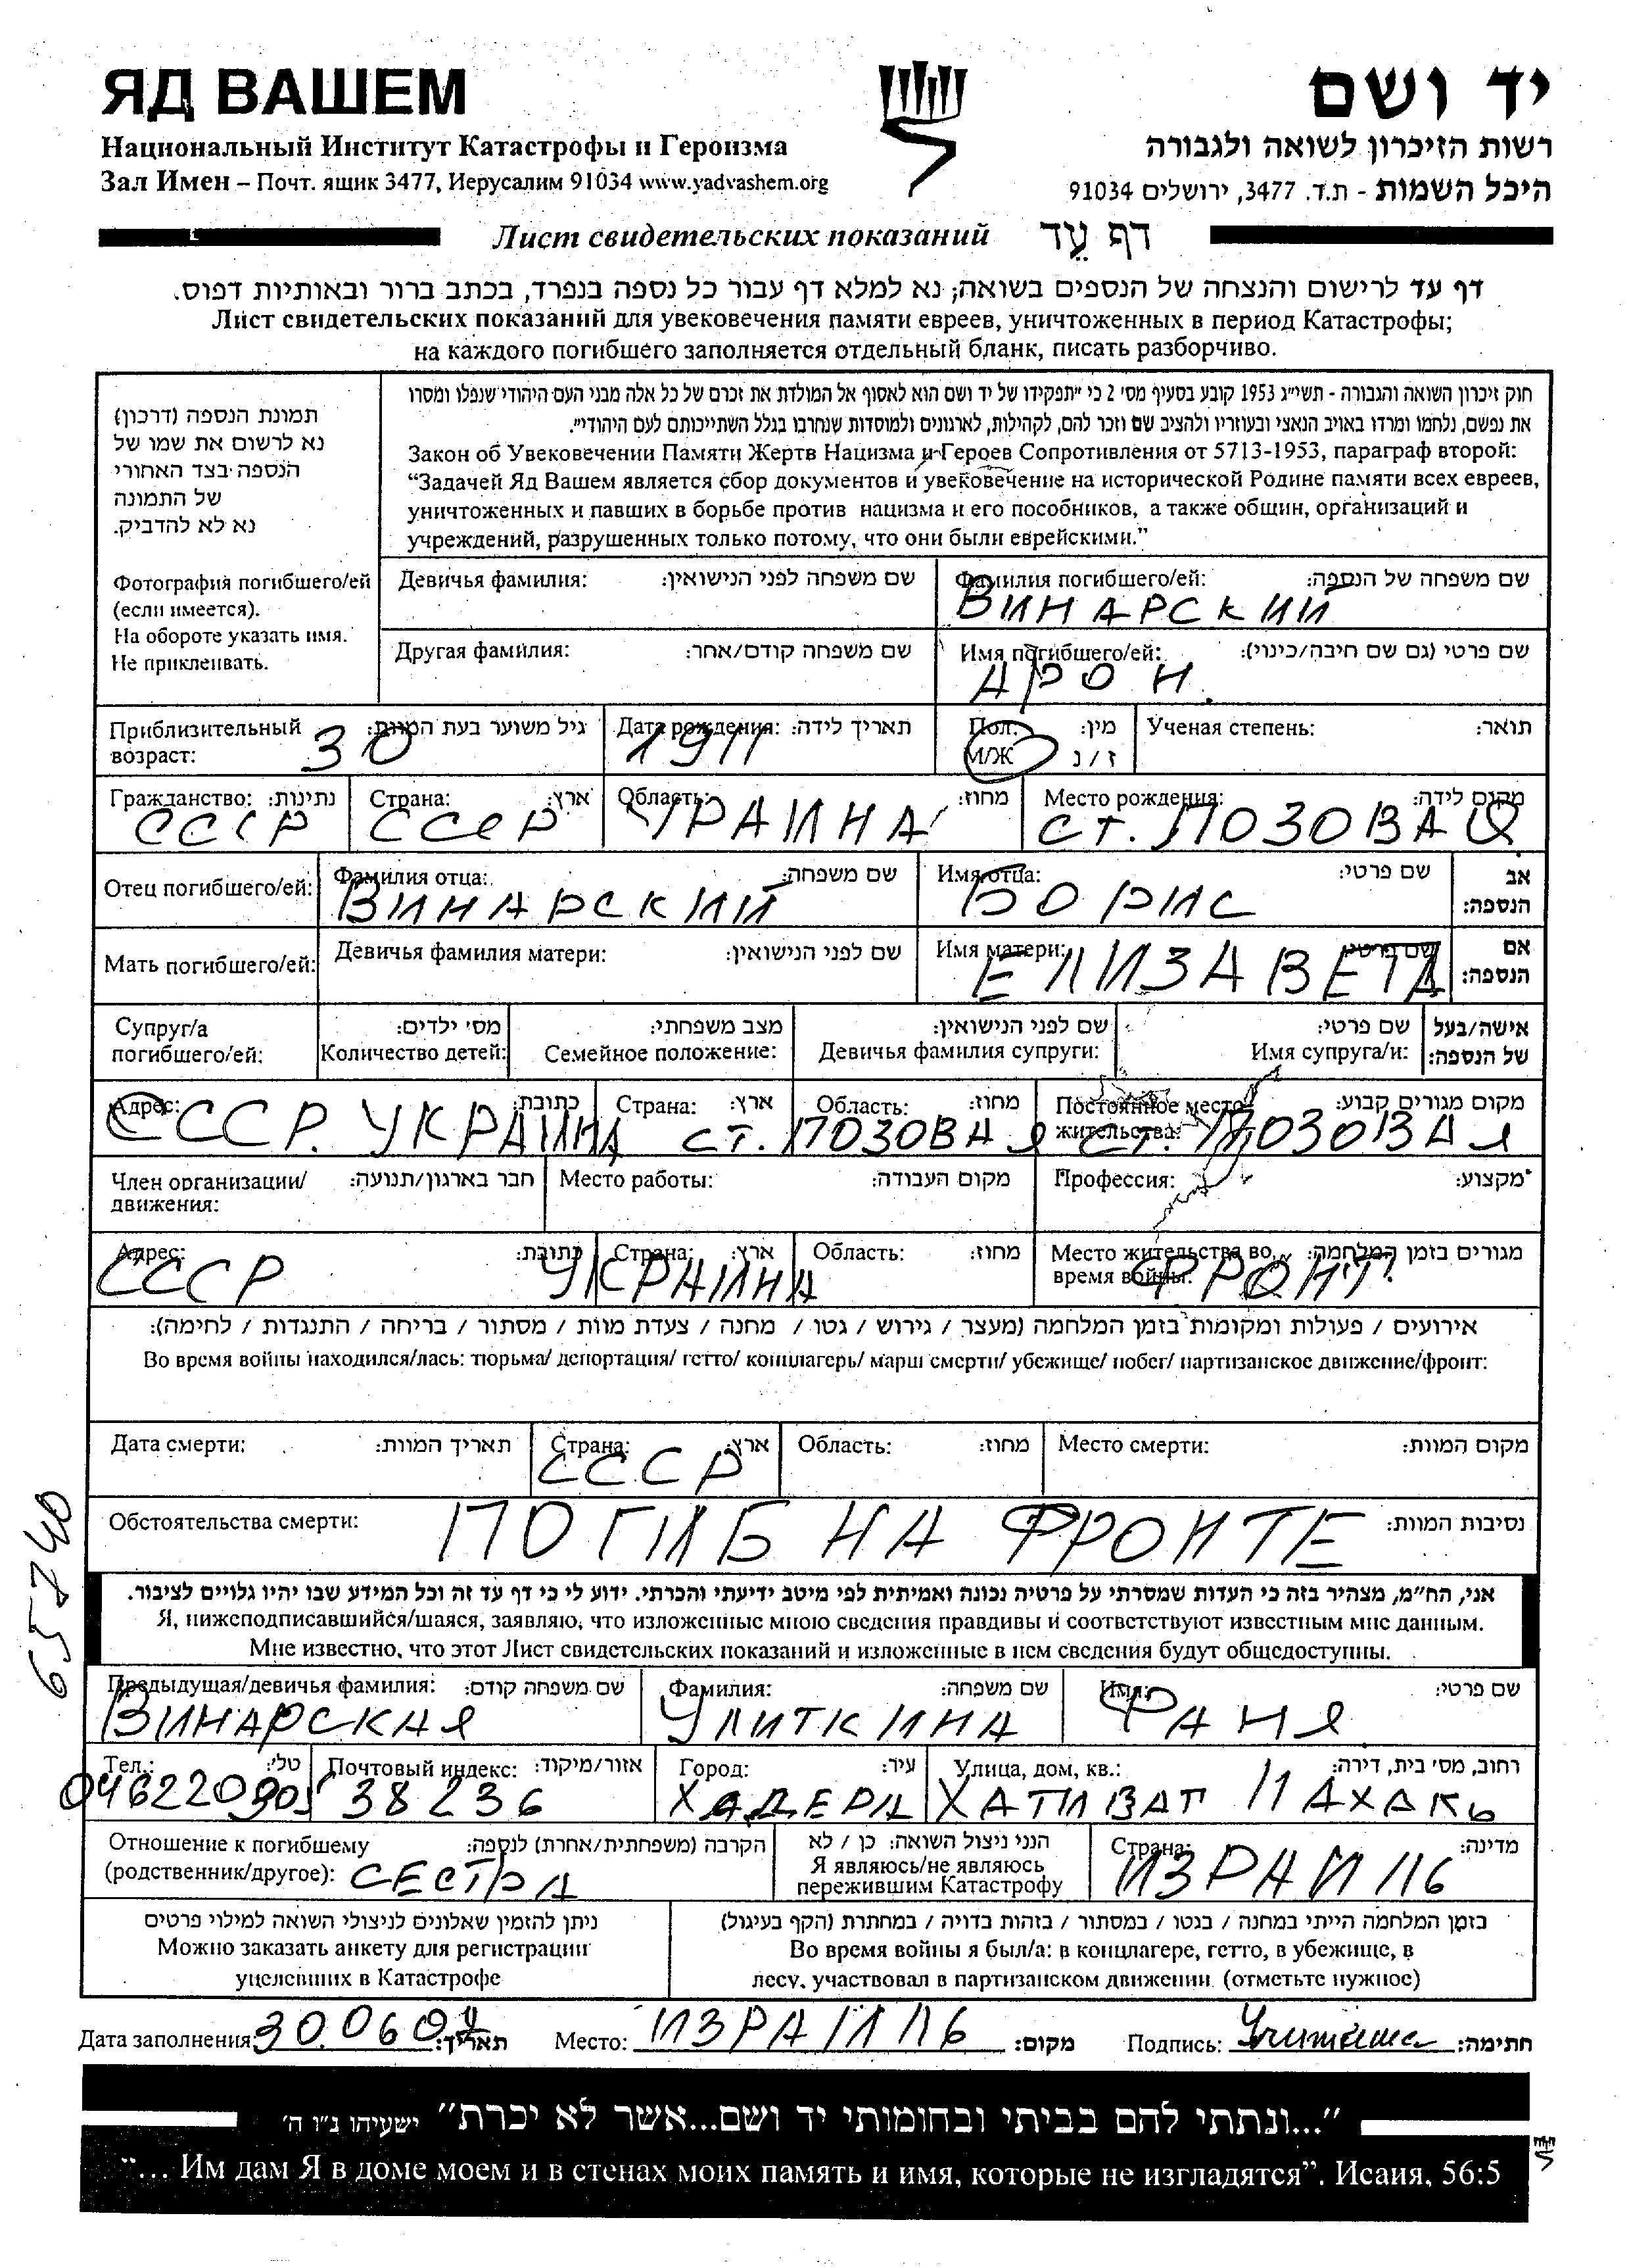 ЯД ВАШЕМ
יד ושם
Национальный Институт Катастрофы и Героизма
רשות הזיכרון לשואה ולגבורה
Зал Имен – Почт. ящик 3477, Иерусалим 91034 www.yadvashem.org
היכל השמות - ת.ד. 3477, ירושלים 91034
Лист свидетельских показаний דף עֵד
דף עד לרישום והנצחה של הנספים בשואה; נא למלא דף עבור כל נספה בנפרד, בכתב ברור ובאותיות דפוס.
Лист свидетельских показаний для увековечения памяти евреев, уничтоженных в период Катастрофы;
на каждого погибшего заполняется отдельный бланк, писать разборчиво.
תמונת הנספה (דרכון)
נא לרשום את שמו של
הנספה בצד האחורי
של התמונה
נא לא להדביק.
Фотография погибшего/ей
(если имеется).
На обороте указать имя.
Не приклеивать.
חוק זיכרון השואה והגבורה - תשי״ג 1953 קובע בסעיף מס׳ 2 כי ״תפקידו של יד ושם הוא לאסוף אל המולדת את זכרם של כל אלה מבני העם היהודי שנפלו ומסרו
את נפשם, נלחמו ומרדו באויב הנאצי ובעוזריו ולהציב שם וזכר להם, לקהילות, לארגונים ולמוסדות שנחרבו בגלל השתייכותם לעם היהודי״.
Закон об Увековечении Памяти Жертв Нацизма и Героев Сопротивления от 5713-1953, параграф второй:
“Задачей Яд Вашем является сбор документов и увековечение на исторической Родине памяти всех евреев,
уничтоженных и павших в борьбе против нацизма и его пособников, а также общин, организаций и
учреждений, разрушенных только потому, что они были еврейскими.”
Девичья фамилия: שם משפחה לפני הנישואין: Фамилия погибшего/ей: שם משפחה של הנספה:
ВИНАРСКИЙ
Другая фамилия: שם משפחה קודם/אחר: Имя погибшего/ей: שם פרטי (גם שם חיבה/כינוי):
АРОН.
Приблизительный возраст: גיל משוער בעת המוות: 30 Дата рождения: תאריך לידה: 1911 Пол: М/Ж מין: ז / נ Ученая степень: תואר:
Гражданство: נתינות: СССР Страна: ארץ: СССР Область: מחוז: УРАИНА Место рождения: מקום לידה: СТ. ЛОЗОВАЯ
Отец погибшего/ей: Фамилия отца: שם משפחה: ВИНАРСКИЙ Имя отца: שם פרטי: БОРИС אב הנספה:
Мать погибшего/ей: Девичья фамилия матери: שם לפני הנישואין: Имя матери: שם פרטי: ЕЛИЗАВЕТА אם הנספה:
Супруг/а погибшего/ей: מס׳ ילדים: Количество детей: מצב משפחתי: Семейное положение: שם לפני הנישואין: Девичья фамилия супруги: שם פרטי: Имя супруга/и: אישה/בעל של הנספה:
Адрес: כתובת: Страна: ארץ: Область: מחוז: Постоянное место жительства: מקום מגורים קבוע:
СССР. УКРАИНА СТ. ЛОЗОВАЯ СТ. ЛОЗОВАЯ
Член организации/ движения: חבר בארגון/תנועה: Место работы: מקום העבודה: Профессия: מקצוע:
Адрес: כתובת: Страна: ארץ: Область: מחוז: Место жительства во время войны: מגורים בזמן המלחמה:
СССР УКРАИНА ФРОНТ.
אירועים / פעולות ומקומות בזמן המלחמה (מעצר / גירוש / גטו / מחנה / צעדת מוות / מסתור / בריחה / התנגדות / לחימה):
Во время войны находился/лась: тюрьма/ депортация/ гетто/ концлагерь/ марш смерти/ убежище/ побег/ партизанское движение/фронт:
Дата смерти: תאריך המוות: Страна: ארץ: СССР Область: מחוז: Место смерти: מקום המוות:
Обстоятельства смерти: ПОГИБ НА ФРОНТЕ נסיבות המוות:
65740
אני, הח״מ, מצהיר בזה כי העדות שמסרתי על פרטיה נכונה ואמיתית לפי מיטב ידיעתי והכרתי. ידוע לי כי דף עד זה וכל המידע שבו יהיו גלויים לציבור.
Я, нижеподписавшийся/шаяся, заявляю, что изложенные мною сведения правдивы и соответствуют известным мне данным.
Мне известно, что этот Лист свидетельских показаний и изложенные в нем сведения будут общедоступны.
Предыдущая/девичья фамилия: שם משפחה קודם: Фамилия: שם משפחה: Имя: שם פרטי:
ВИНАРСКАЯ УЛИТКИНА ФАНЯ
Тел.: טל׳: Почтовый индекс: אזור/מיקוד: Город: עיר: Улица, дом, кв.: רחוב, מס׳ בית, דירה:
38236 ХАДЕРА ХАТИВАТ
Отношение к погибшему (родственник/другое): הקרבה (משפחתית/אחרת) לנספה: СЕСТРА
הנני ניצול השואה: כן / לא
Я являюсь/не являюсь
пережившим Катастрофу
Страна: מדינה: ИЗРАИЛЬ
ניתן להזמין שאלונים לניצולי השואה למילוי פרטים
Можно заказать анкету для регистрации
уцелевших в Катастрофе
בזמן המלחמה הייתי במחנה / בגטו / במסתור / בזהות בדויה / במחתרת (הקף בעיגול)
Во время войны я был/а: в концлагере, гетто, в убежище, в
лесу, участвовал в партизанском движении (отметьте нужное)
Дата заполнения: תאריך: Место: ИЗРАИЛЬ מקום: Подпись: חתימה:
״...ונתתי להם בביתי ובחומותי יד ושם...אשר לא יכרת״ ישעיהו נ״ו ה׳
“... Им дам Я в доме моем и в стенах моих память и имя, которые не изгладятся”. Исаия, 56:5